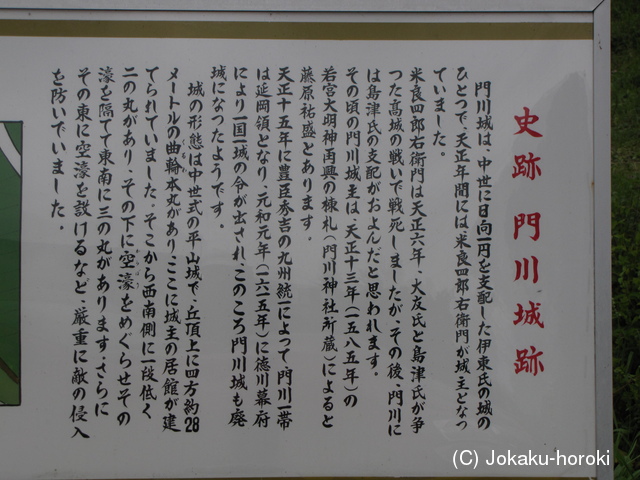 史跡 門川城跡
門川城は、中世に日向一円を支配した伊東氏の城の
ひとつで、天正年間には米良四郎右衛門が城主となっ
ていました。
米良四郎右衛門は天正六年、大友氏と島津氏が争
った高城の戦いで戦死しましたが、その後、門川に
は島津氏の支配がおよんだと思われます。
その頃の門川城主は、天正十三年(一五八五年)の
若宮大明神再興の棟札(門川神社所蔵)によると
藤原祐盛とあります。
天正十五年に豊臣秀吉の九州統一によって、門川一帯
は延岡領となり、元和元年(一六一五年)に徳川幕府
により一国一城の令が出され、このころ門川城も廃
城になったようです。
城の形態は中世式の平山城で、丘頂上に四方約28
メートルの曲輪本丸があり、ここに城主の居館が建
てられていました。そこから西南側に一段低く
二の丸があり、その下に空濠をめぐらせその
濠を隔てて東南に三の丸があります。さらに
その東に空濠を設けるなど、厳重に敵の侵入
を防いでいました。
(C) Jokaku-horoki